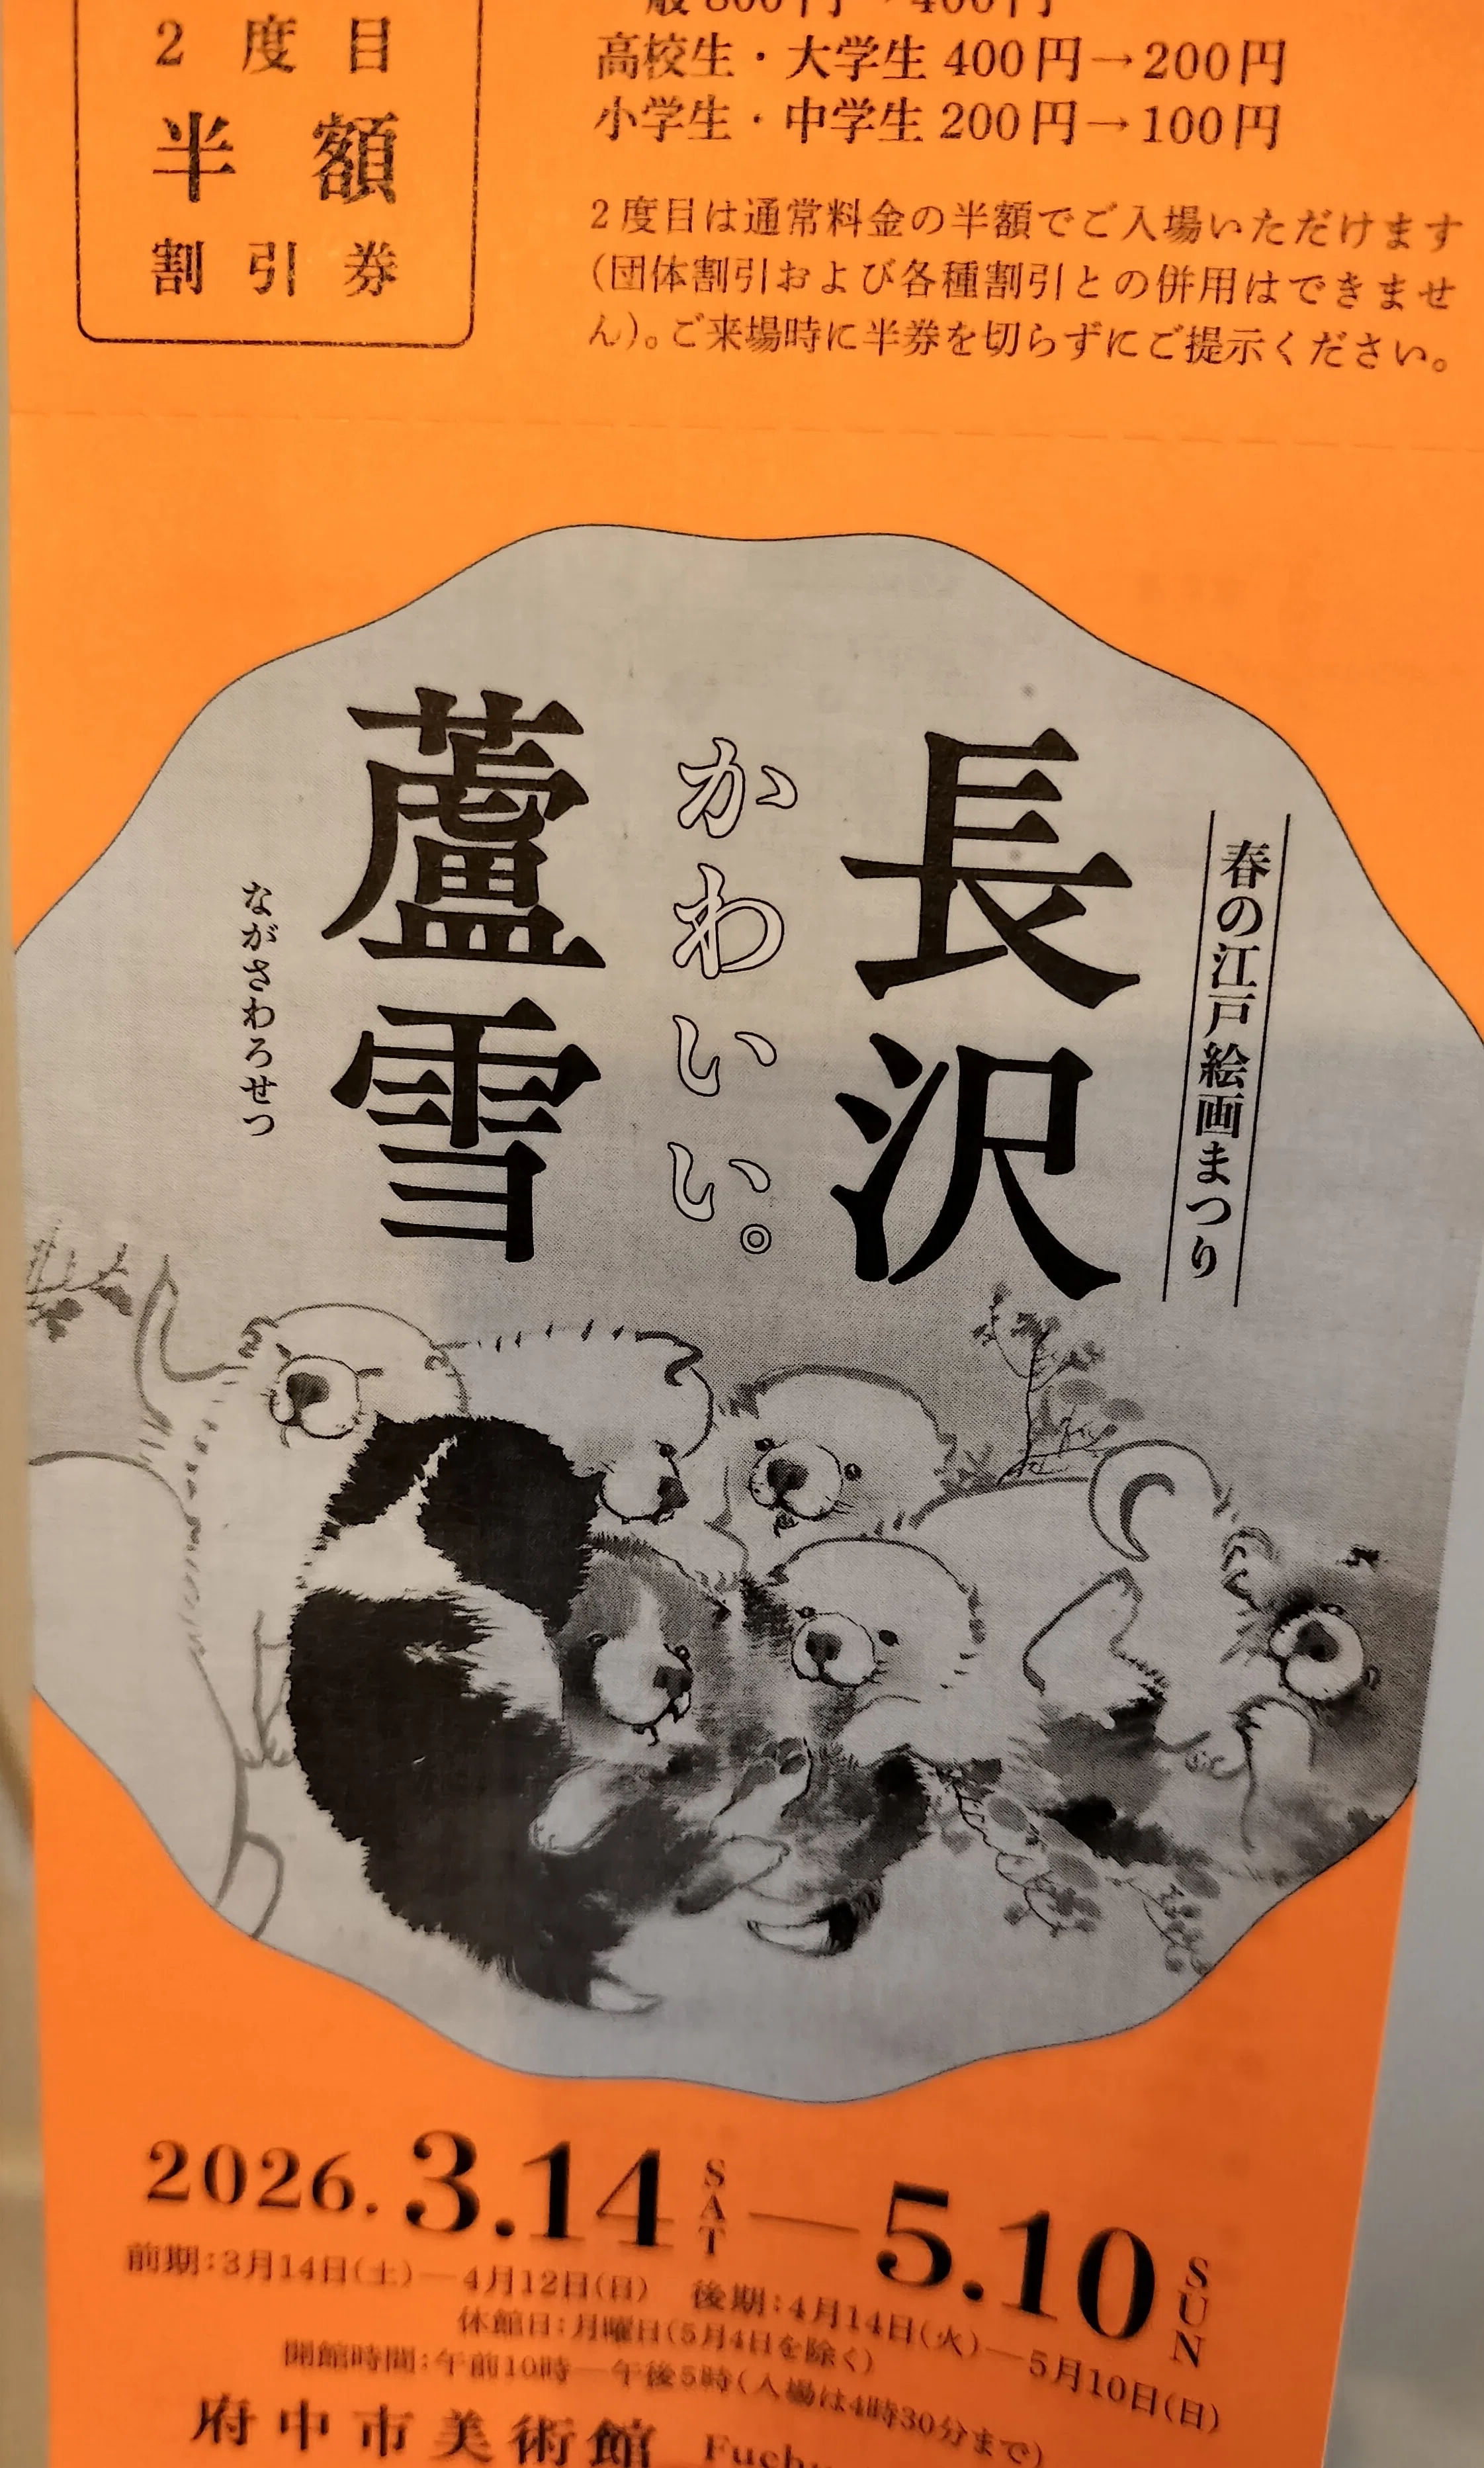 2度目
半額
割引券
般800円→400円
高校生・大学生 400円→200円
小学生・中学生 200円→100円
2度目は通常料金の半額でご入場いただけます
(団体割引および各種割引との併用はできませ
ん)。ご来場時に半券を切らずにご提示ください。
春の江戸絵画まつり
長沢
かわいい。
蘆雪
ながさわろせつ
2026.3.14 SAT — 5.10 SUN
前期:3月14日(土)—4月12日(日) 後期:4月14日(火)—5月10日(日)
休館日:月曜日(5月4日を除く)
開館時間:午前10時—午後5時(入場は4時30分まで)
府中市美術館